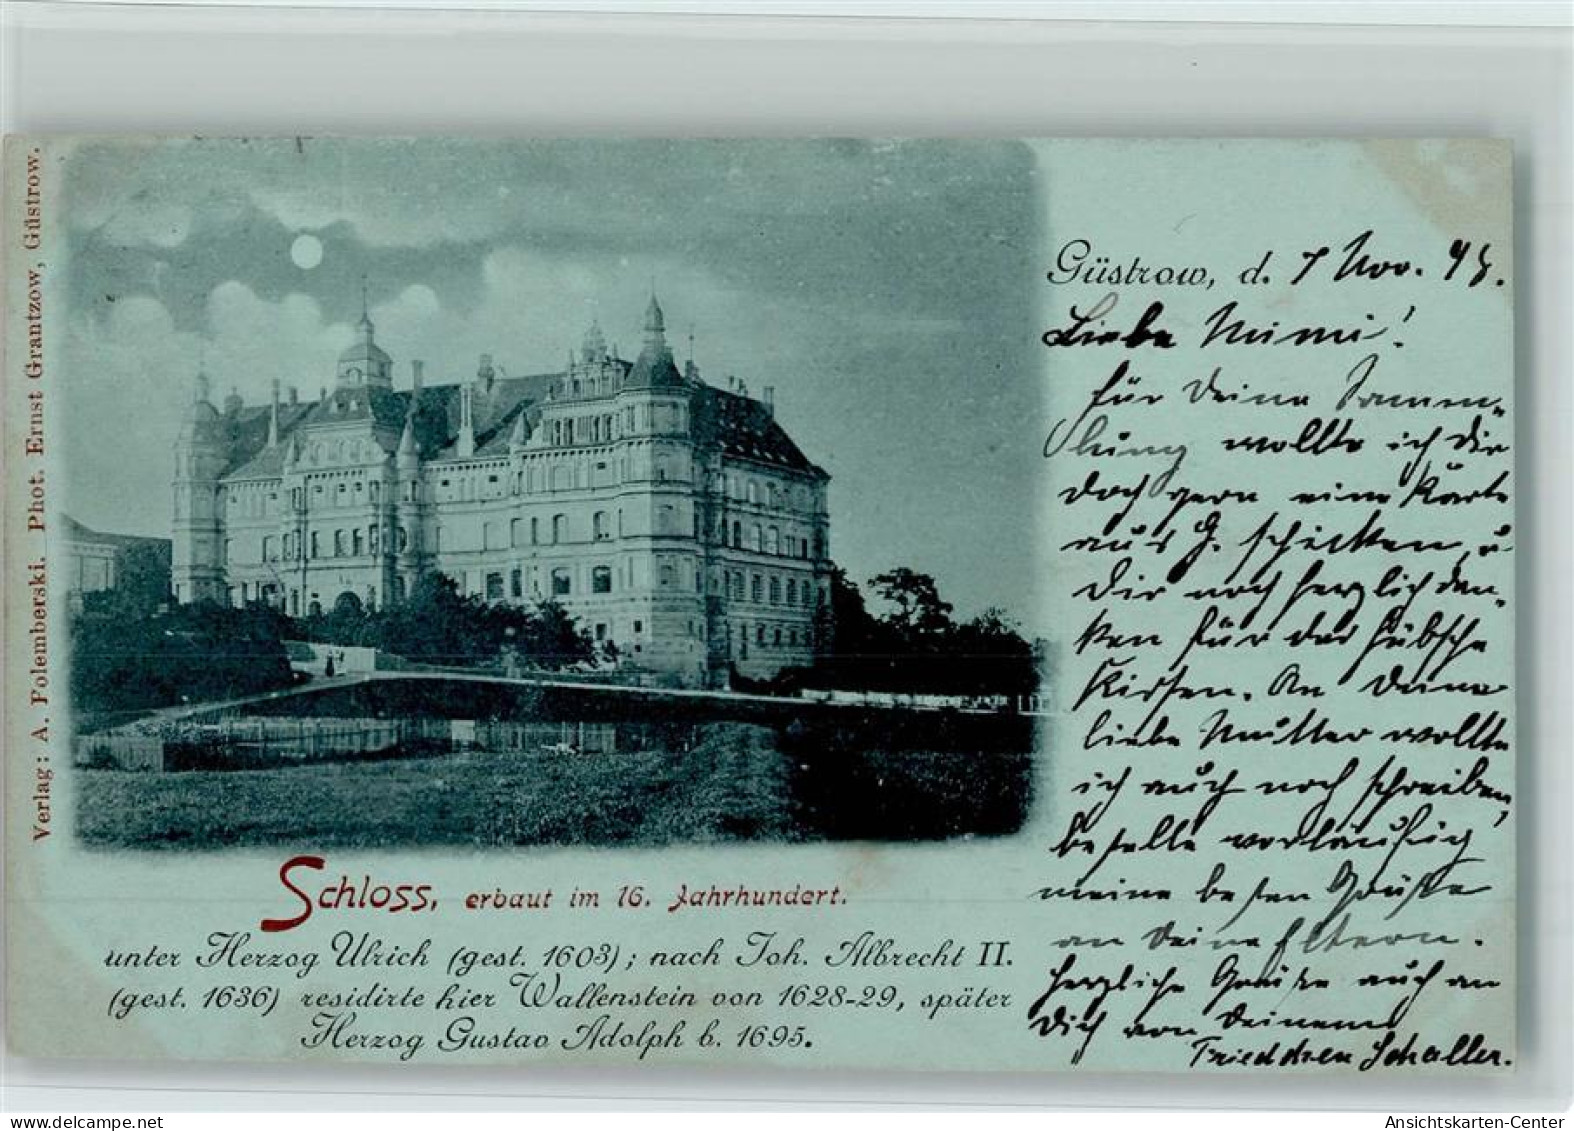 Verlag: A. Polemberski. Phot. Ernst Grantzow, Güstrow.
Güstrow, d. 7 Nov. 98.
Liebe Mimi!
für Deine Samm-
lung wollte ich Dir
doch gern eine Karte
aus G. schicken, u.
Dir noch herzlich dan-
ken für das hübsche
Kissen. An Deine
liebe Mutter wollte
ich auch noch schreiben,
bestelle vorläufig
meine besten Grüße
an Deine Eltern.
Herzliche Grüße auch an
Dich von Deinem
Friedchen Schaller.
Schloss, erbaut im 16. Jahrhundert.
unter Herzog Ulrich (gest. 1603); nach Joh. Albrecht II.
(gest. 1636) residirte hier Wallenstein von 1628-29, später
Herzog Gustav Adolph b. 1695.
www.delcampe.net
Ansichtskarten-Center